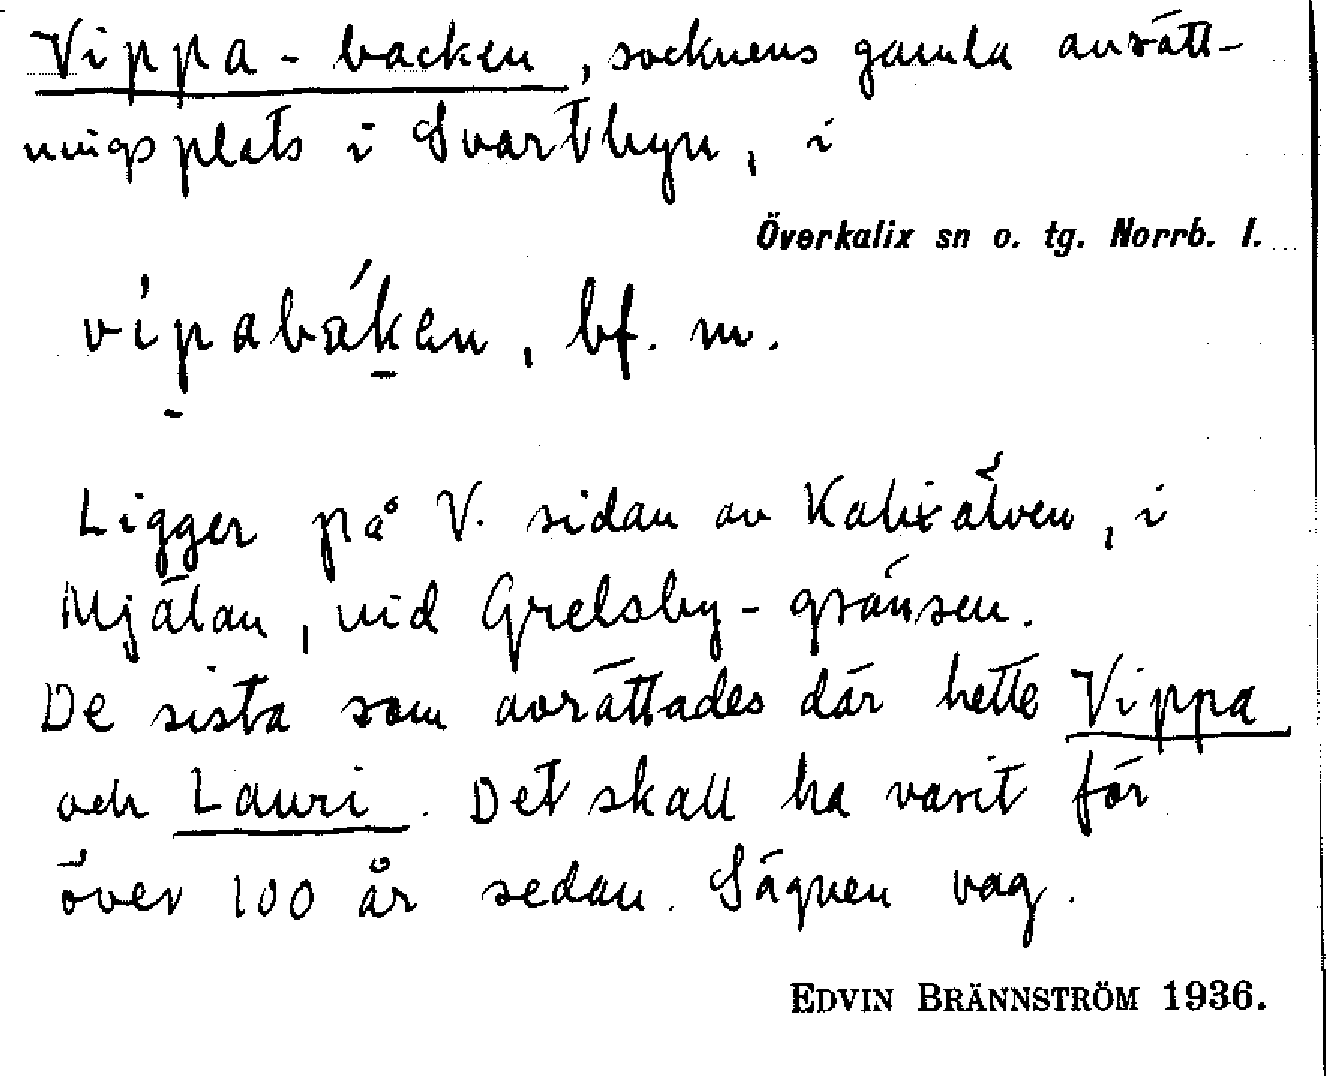 Vippa-backen, socknens gamla avrätt-
ningsplats i Svartbyn, i
Överkalix sn o. tg. Norrb. l.
vìpabák̠en, bf. m.
Ligger på V. sidan av Kalixälven, i
Mjälan, vid Grelsby-gränsen.
De sista som avrättades där hette Vippa
och Lauri. Det skall ha varit för
över 100 år sedan. Sägnen vag.
EDVIN BRÄNNSTRÖM 1936.